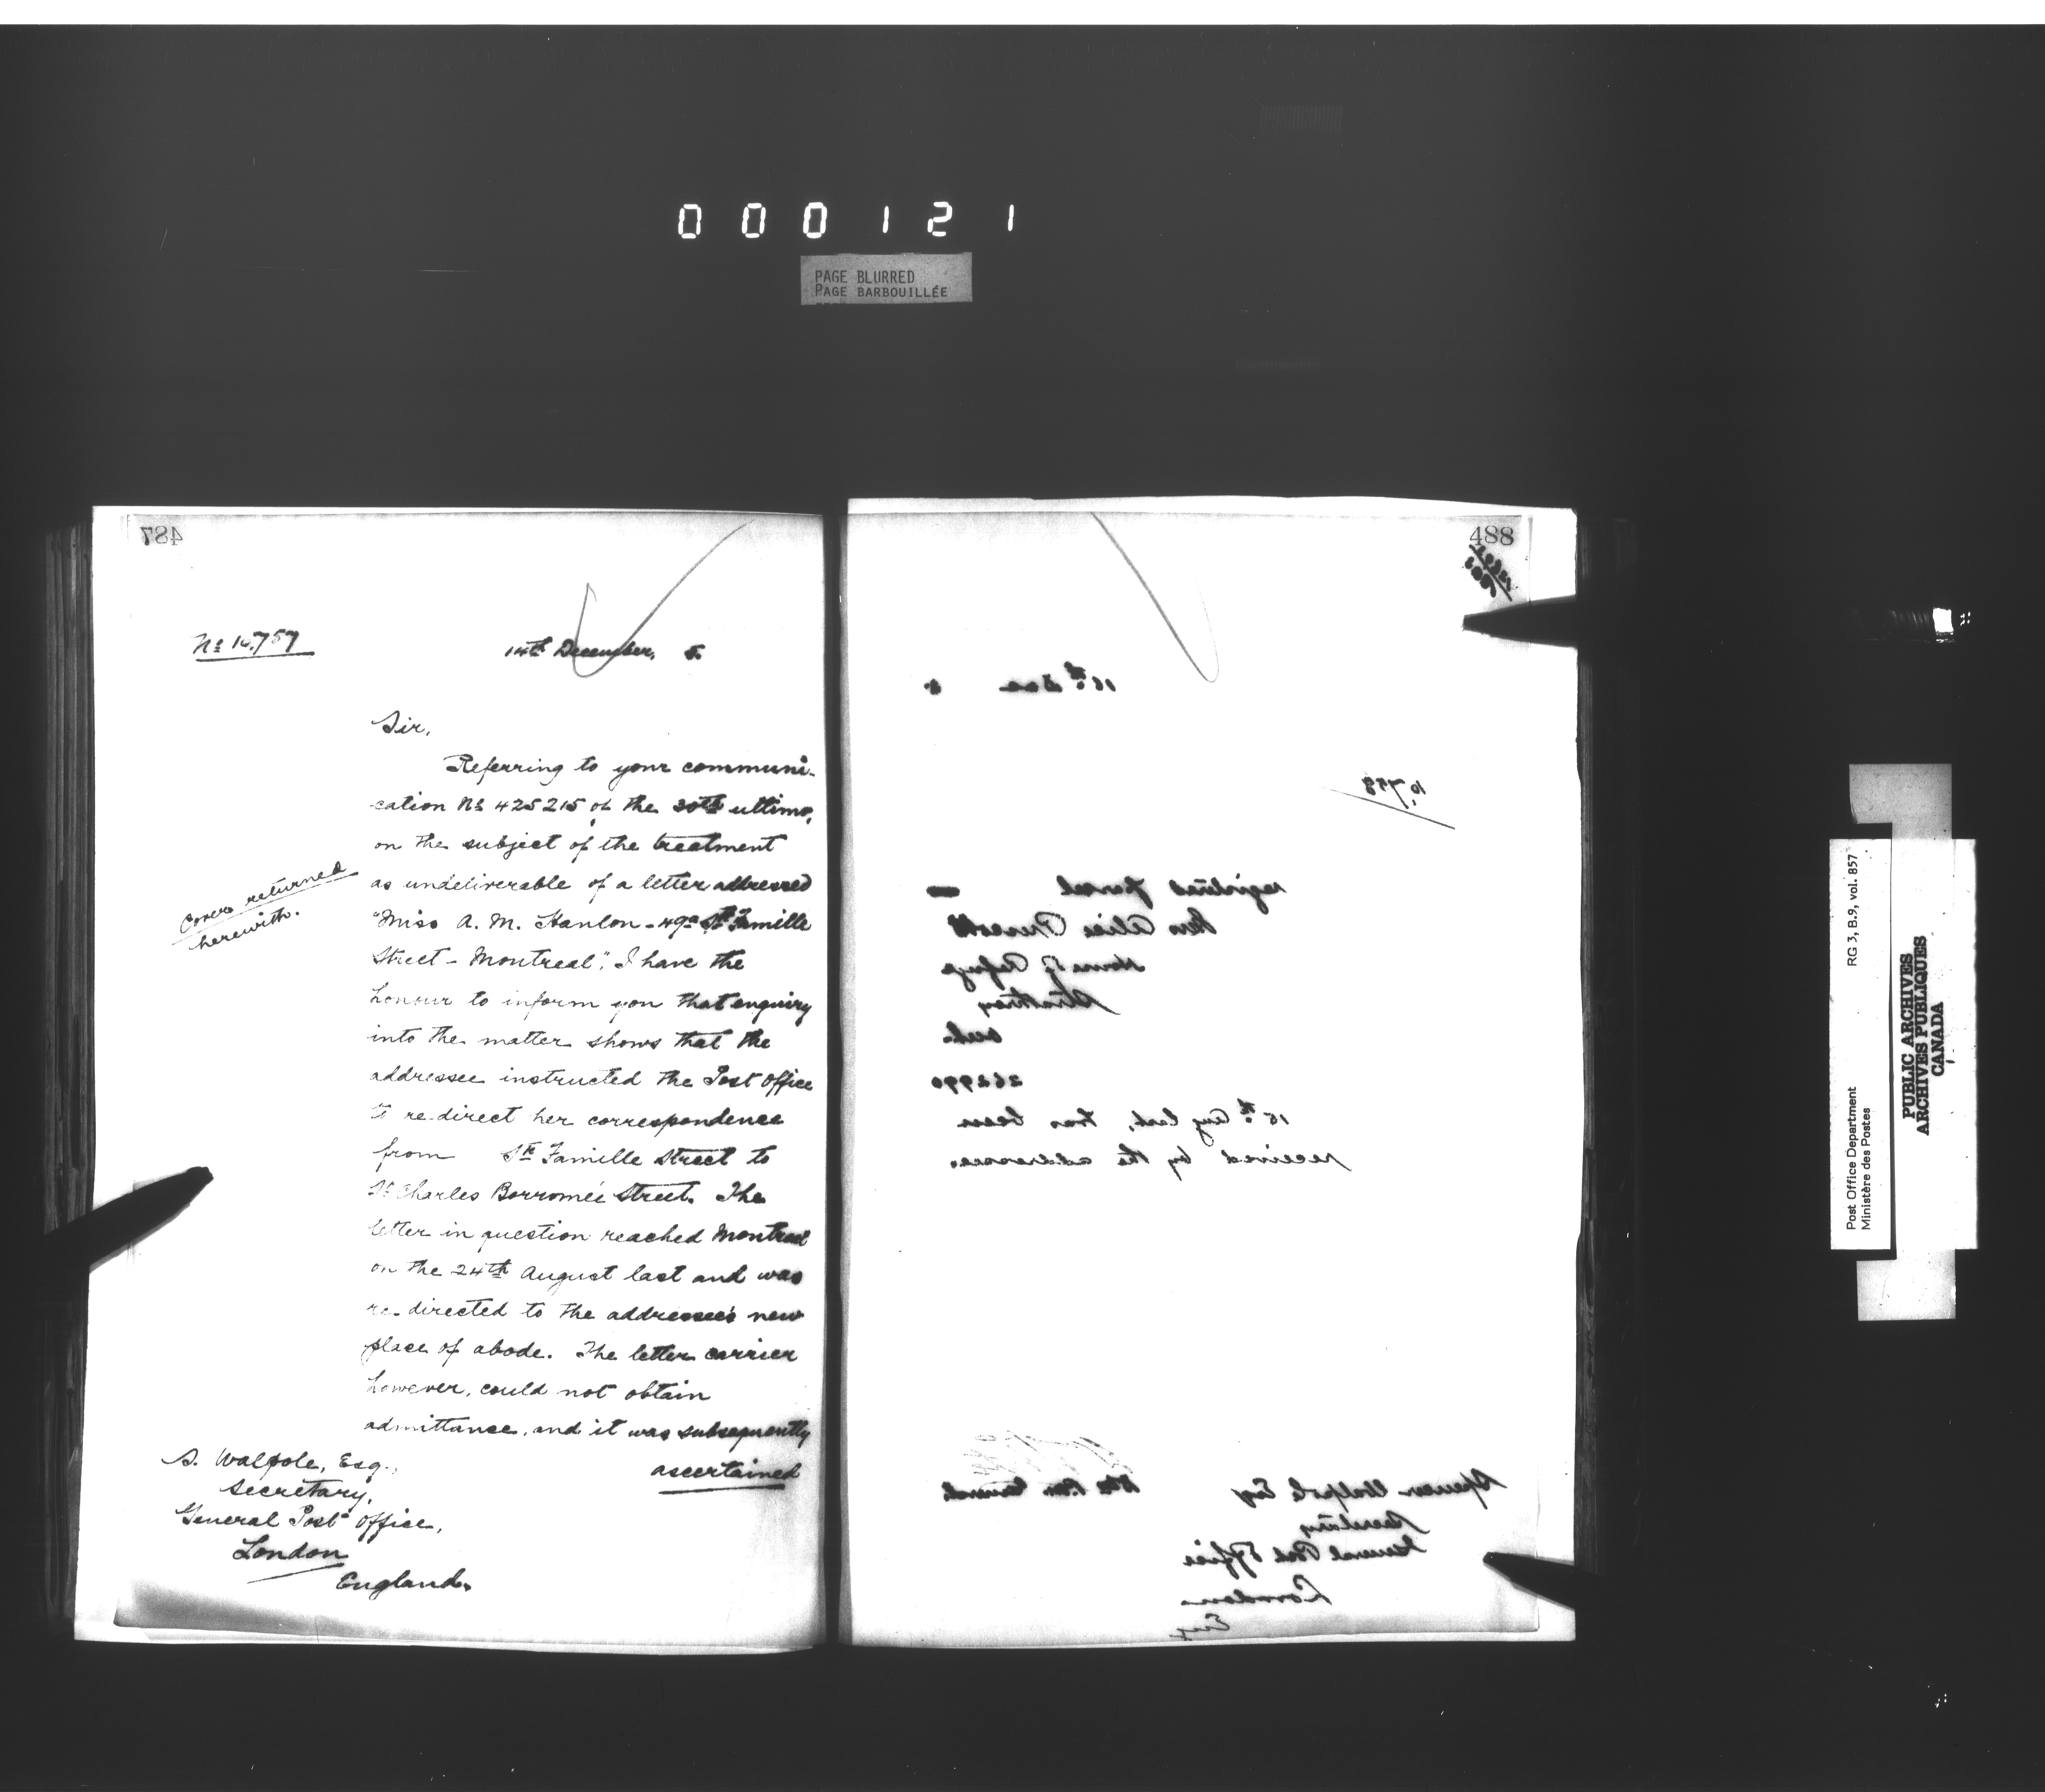 000121
PAGE BLURRED
PAGE BARBOUILLÉE
487
No 10,757
14th December, 5.
Sir,
Referring to your communi-
cation No 425215 of the 30th ultimo,
on the subject of the treatment
as undeliverable of a letter addressed
"Miss A. M. Hanlon - 49a St Famille
Street - Montreal", I have the
honour to inform you that enquiry
into the matter shows that the
addressee instructed the Post Office
to re-direct her correspondence
from St Famille Street to
St Charles Borromée Street. The
letter in question reached Montreal
on the 24th August last and was
re-directed to the addressee's new
place of abode. The letter carrier
however, could not obtain
admittance, and it was subsequently
ascertained
Cover returned
herewith.
S. Walpole, Esq.,
Secretary,
General Post Office,
London
England.
488
16th Dec
10,758
registered parcel
Mrs Alice Prescott
Home of Refuge
Strathroy
Ont.
262990
15th Aug last, has been
received by the addressee.
Spencer Walpole Esq
Secretary
General Post Office
London
Eng
Post Office Department
Ministère des Postes
RG 3, B.9, vol. 857
PUBLIC ARCHIVES
ARCHIVES PUBLIQUES
CANADA